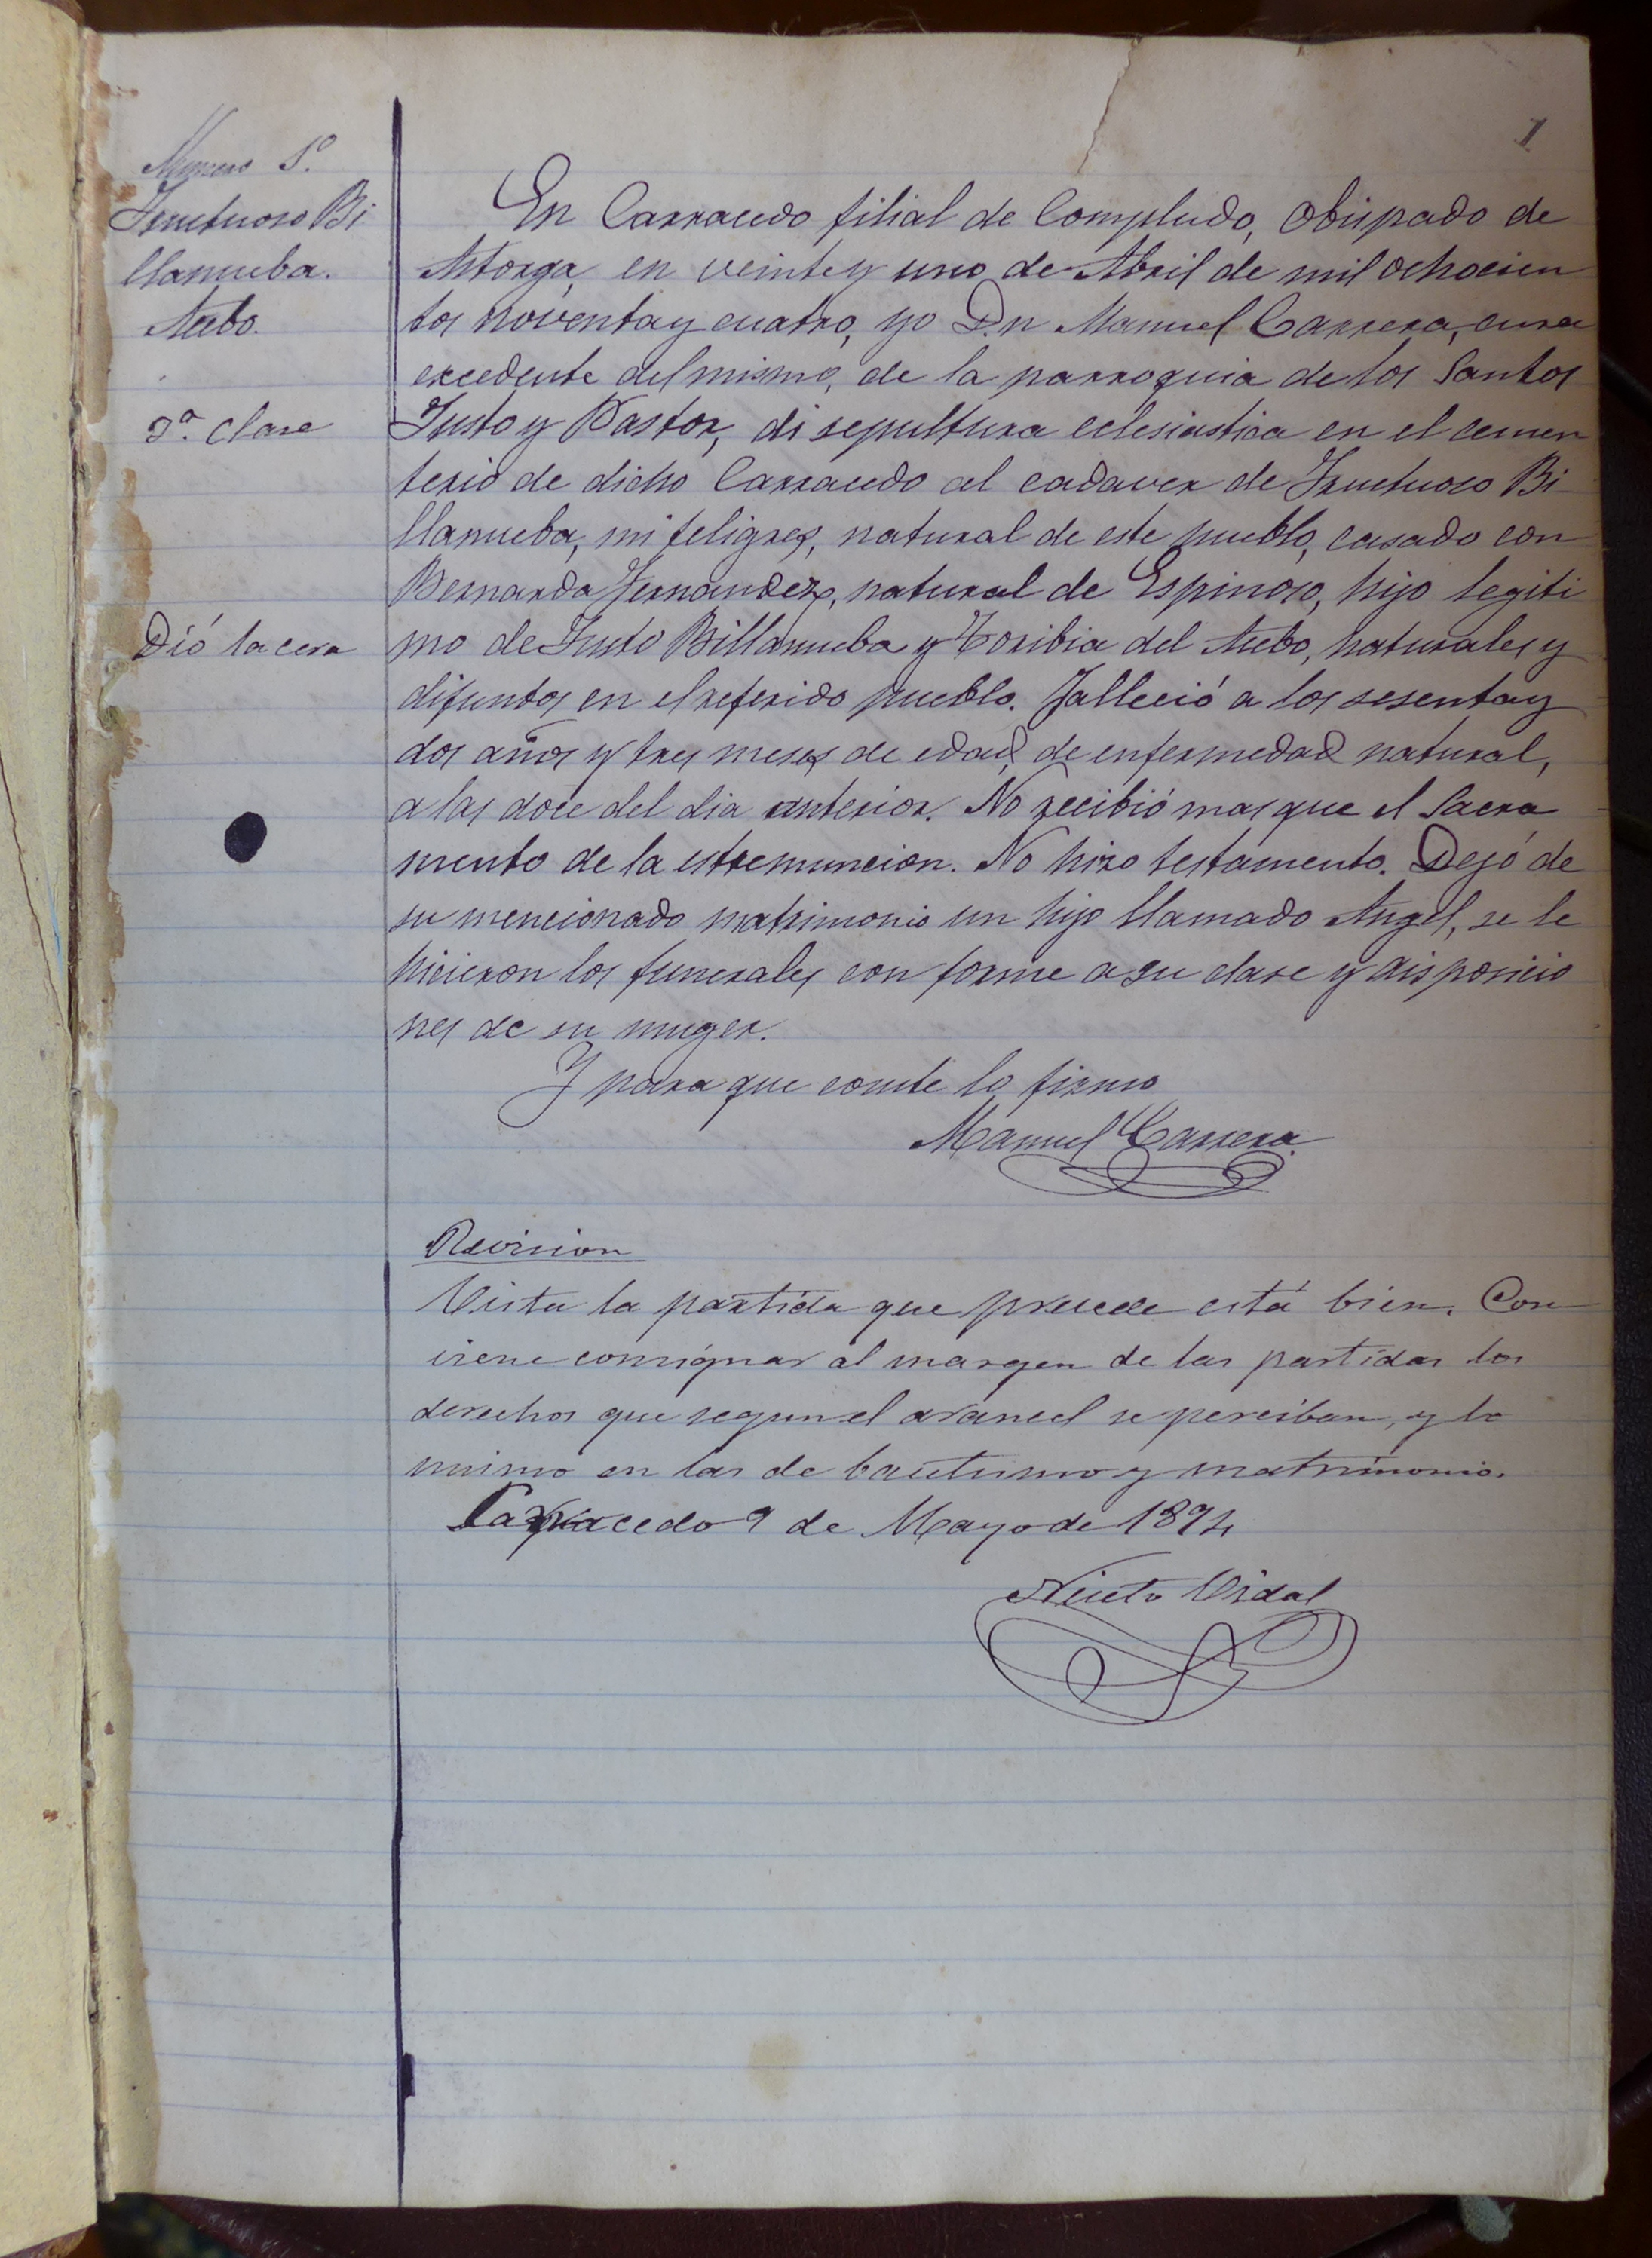 1
Numero 1º.
Fructuoso Bi
llanueba.
Acebo.
2ª. clase
Dió la cera
En Carracedo filial de Compludo, Obispado de
Astorga, en veinte y uno de Abril de mil ochocien
tos noventa y cuatro, yo D.n Manuel Carrera, cura
excedente del mismo, de la parroquia de los Santos
Justo y Pastor, di sepultura eclesiastica en el cemen
terio de dicho Carracedo al cadaver de Fructuoso Bi
llanueba, mi feligres, natural de este pueblo, casado con
Bernarda Fernandez, natural de Espinoso, hijo legiti
mo de Justo Billanueba y Toribia del Acebo, naturales y
difuntos en el referido pueblo. Falleció a los sesenta y
dos años y tres meses de edad, de enfermedad natural,
a las doce del dia anterior. No recibió mas que el Sacra
mento de la estremuncion. No hizo testamento. Dejó de
su mencionado matrimonio un hijo llamado Angel, se le
hicieron los funerales con forme a su clase y disposicio
nes de su muger.
Y para que conste lo firmo
Manuel Carrera.
Revision
Vista la partida que precede está bien. Con
viene consignar al margen de las partidas los
derechos que segun el arancel se perciban, y lo
mismo en las de bautismo y matrimonio.
Carracedo 9 de Mayo de 1894
Nieto Vidal